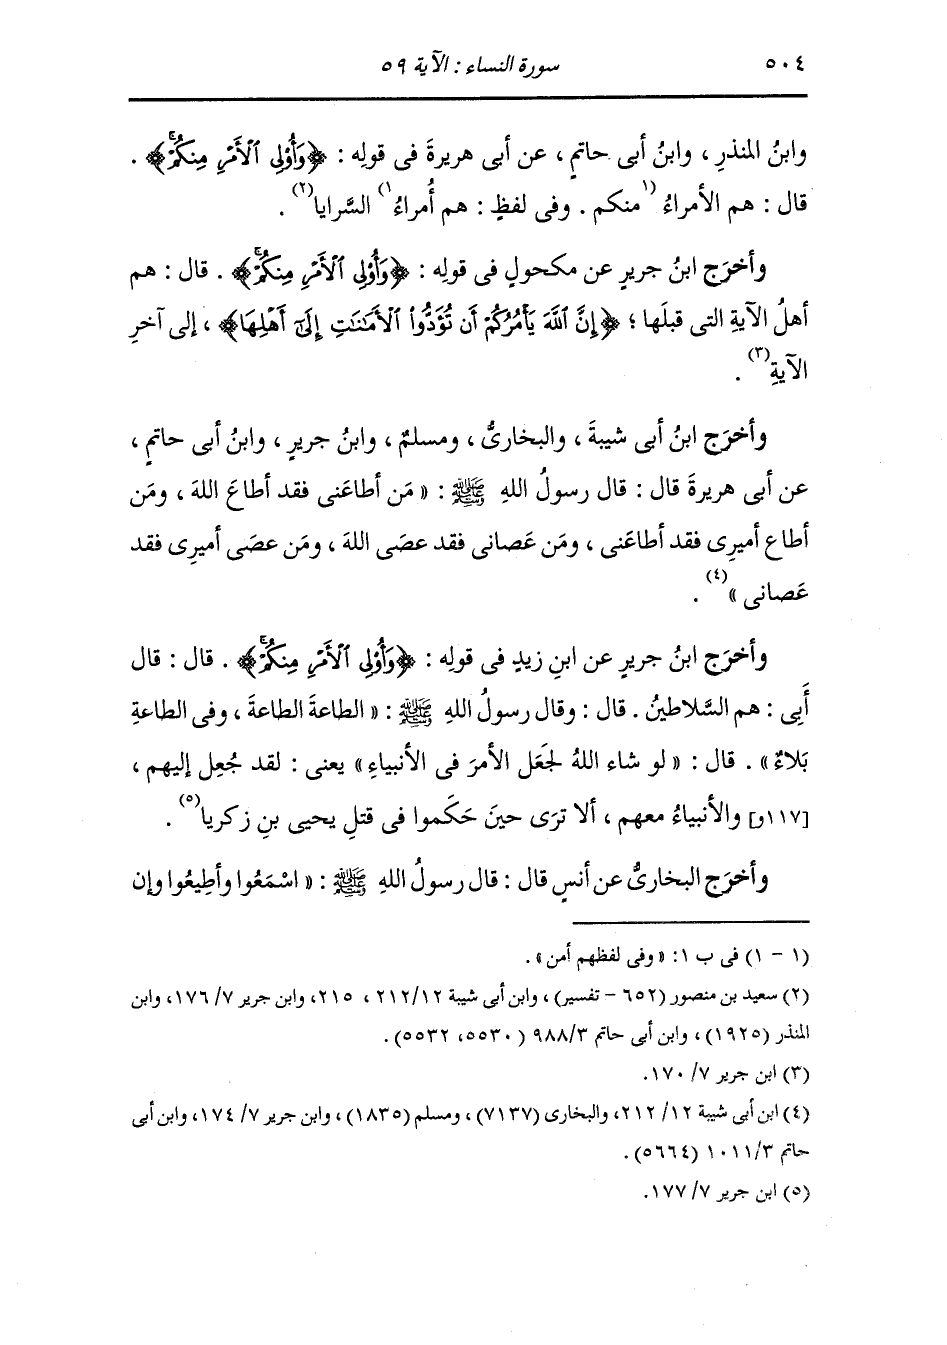 ٥٠٤ سورة النساء : الآية ٥٩
وابنُ المنذرِ ، وابنُ أبى حاتمٍ ، عن أبى هريرةَ فى قولِه : ﴿وَأُوْلِى ٱلْأَمْرِ مِنكُمْۖ﴾ .
قال : هم الأمراءُ (١منكم . وفى لفظٍ : هم أُمراءُ١) السَّرايا(٢) .
وأخرَج ابنُ جريرٍ عن مكحولٍ فى قولِه : ﴿وَأُوْلِى ٱلْأَمْرِ مِنكُمْۖ﴾ . قال : هم
أهلُ الآيةِ التى قبلَها ؛ ﴿إِنَّ ٱللَّهَ يَأْمُرُكُمْ أَن تُؤَدُّوا۟ ٱلْأَمَٰنَٰتِ إِلَىٰٓ أَهْلِهَا﴾ ، إلى آخرِ
الآيةِ(٣) .
وأخرَج ابنُ أبى شيبةَ ، والبخارىُّ ، ومسلمٌ ، وابنُ جريرٍ ، وابنُ أبى حاتمٍ ،
عن أبى هريرةَ قال : قال رسولُ اللهِ ﷺ : « مَن أطاعَنى فقد أطاعَ اللهَ ، ومَن
أطاع أميرِى فقد أطاعَنى ، ومَن عَصانى فقد عصَى اللهَ ، ومَن عصَى أميرِى فقد
عَصانى »(٤) .
وأخرَج ابنُ جريرٍ عن ابنِ زيدٍ فى قولِه : ﴿وَأُوْلِى ٱلْأَمْرِ مِنكُمْۖ﴾ . قال : قال
أَبِى : هم السَّلاطينُ . قال : وقال رسولُ اللهِ ﷺ : « الطاعةَ الطاعةَ ، وفى الطاعةِ
بَلاءٌ » . قال : « لو شاء اللهُ لجَعَل الأمرَ فى الأنبياءِ » يعنى : لقد جُعِل إليهم ،
[١١٧و] والأنبياءُ معهم ، ألا ترَى حينَ حَكَموا فى قتلِ يحيى بنِ زكريا(٥) .
وأخرَج البخارىُّ عن أنسٍ قال : قال رسولُ اللهِ ﷺ : « اسْمَعُوا وأطِيعُوا وإن
(١ - ١) فى ب ١: « وفى لفظهم أمن » .
(٢) سعيد بن منصور (٦٥٢ - تفسير) ، وابن أبى شيبة ٢١٢/١٢ ، ٢١٥، وابن جرير ٧/ ١٧٦، وابن
المنذر (١٩٢٥) ، وابن أبى حاتم ٩٨٨/٣ ( ٥٥٣٠، ٥٥٣٢) .
(٣) ابن جرير ٧/ ١٧٠.
(٤) ابن أبى شيبة ١٢/ ٢١٢، والبخارى (٧١٣٧) ، ومسلم (١٨٣٥) ، وابن جرير ٧/ ١٧٤، وابن أبى
حاتم ١٠١١/٣ (٥٦٦٤) .
(٥) ابن جرير ٧/ ١٧٧.